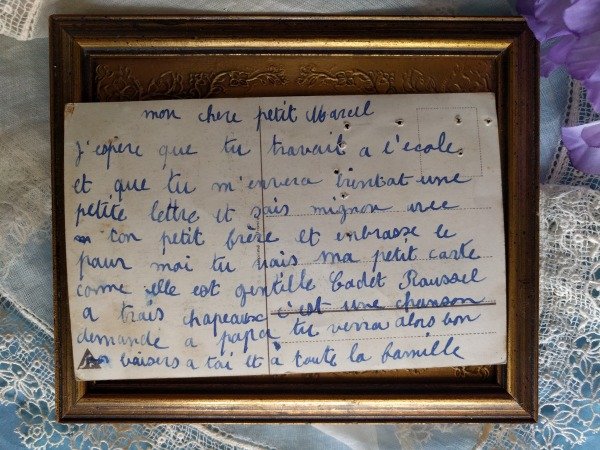 mon chere petit Marcil
J'espere que tu travail a l'école.
et que tu m'envera bientat une
petite lettre et sais mignon avec
ton petit frère et enbrasse le
pour moi tu vais ma petit carte
come elle est gentille Cadet Roussel
a trais chapeaux c'est une chanson
demande a papa tu verra alors bon
baisers a tai et à toute la famille